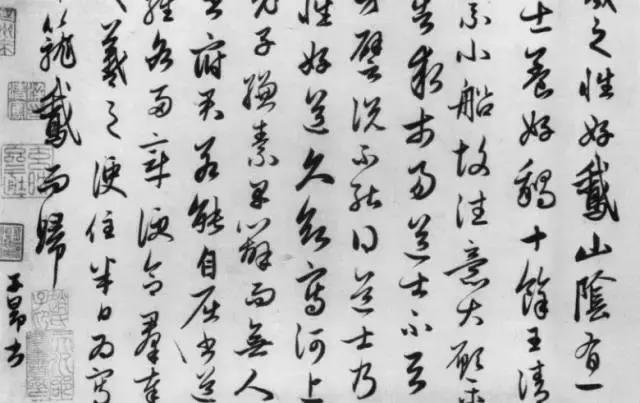 羲之性好鵞山陰有一
士養好鵝十餘王清
乘小船故往意大願樂
告求市易道士不
譬說不能得道士乃
性好道久欲寫河上
老子縑素早辦而無人
書府君若能自屈書道
經各兩章便合羣奉
羲之便住半日為寫
籠鵞而歸
子昂書